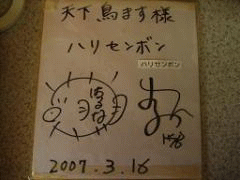 天下鳥ます様
ハリセンボン
ハリセンボン
はるな
2007.3.16